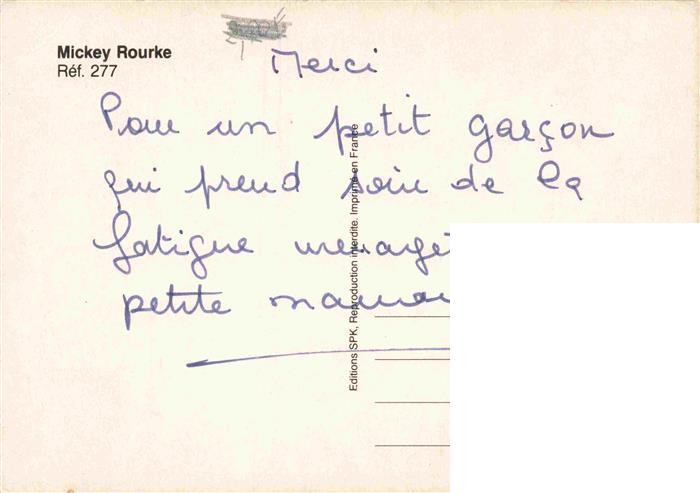 Mickey Rourke
Réf. 277
Merci
Pour un petit garçon
qui prend soin de la
fatigue
petite
Editions SPK, Reproduction interdite. Imprimé en France